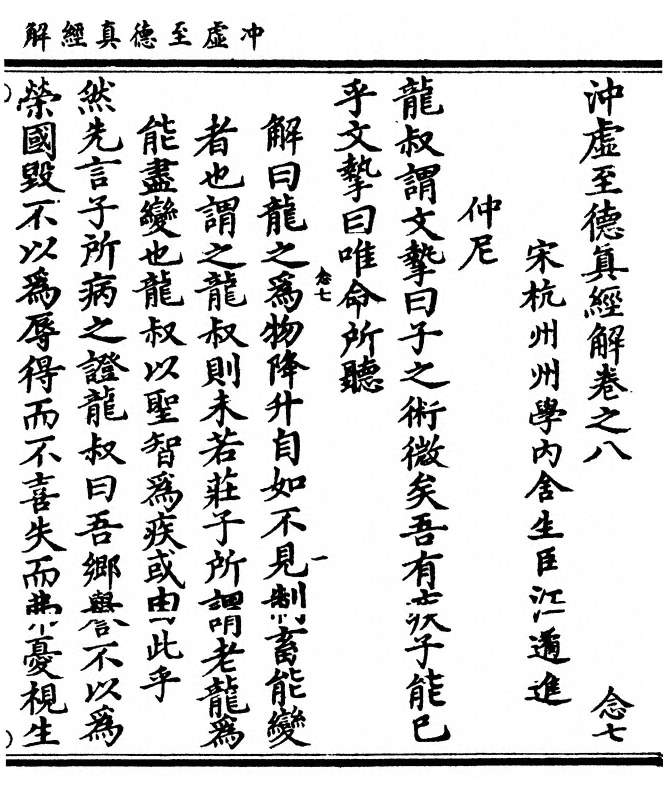 冲虛至德真經解
沖虛至德眞經解卷之八
宋杭州州學内舍生臣江遹進
念七
仲尼
龍叔謂文摯曰子之術微矣吾有疾子能已
乎文摯曰唯命所聽
念七
一
解曰龍之爲物降升自如不見制畜能變
者也謂之龍叔則未若莊子所謂老龍爲
能盡變也龍叔以聖智爲疾或由此乎
然先言子所病之證龍叔曰吾鄉譽不以爲
榮國毀不以爲辱得而不喜失而弗憂視生